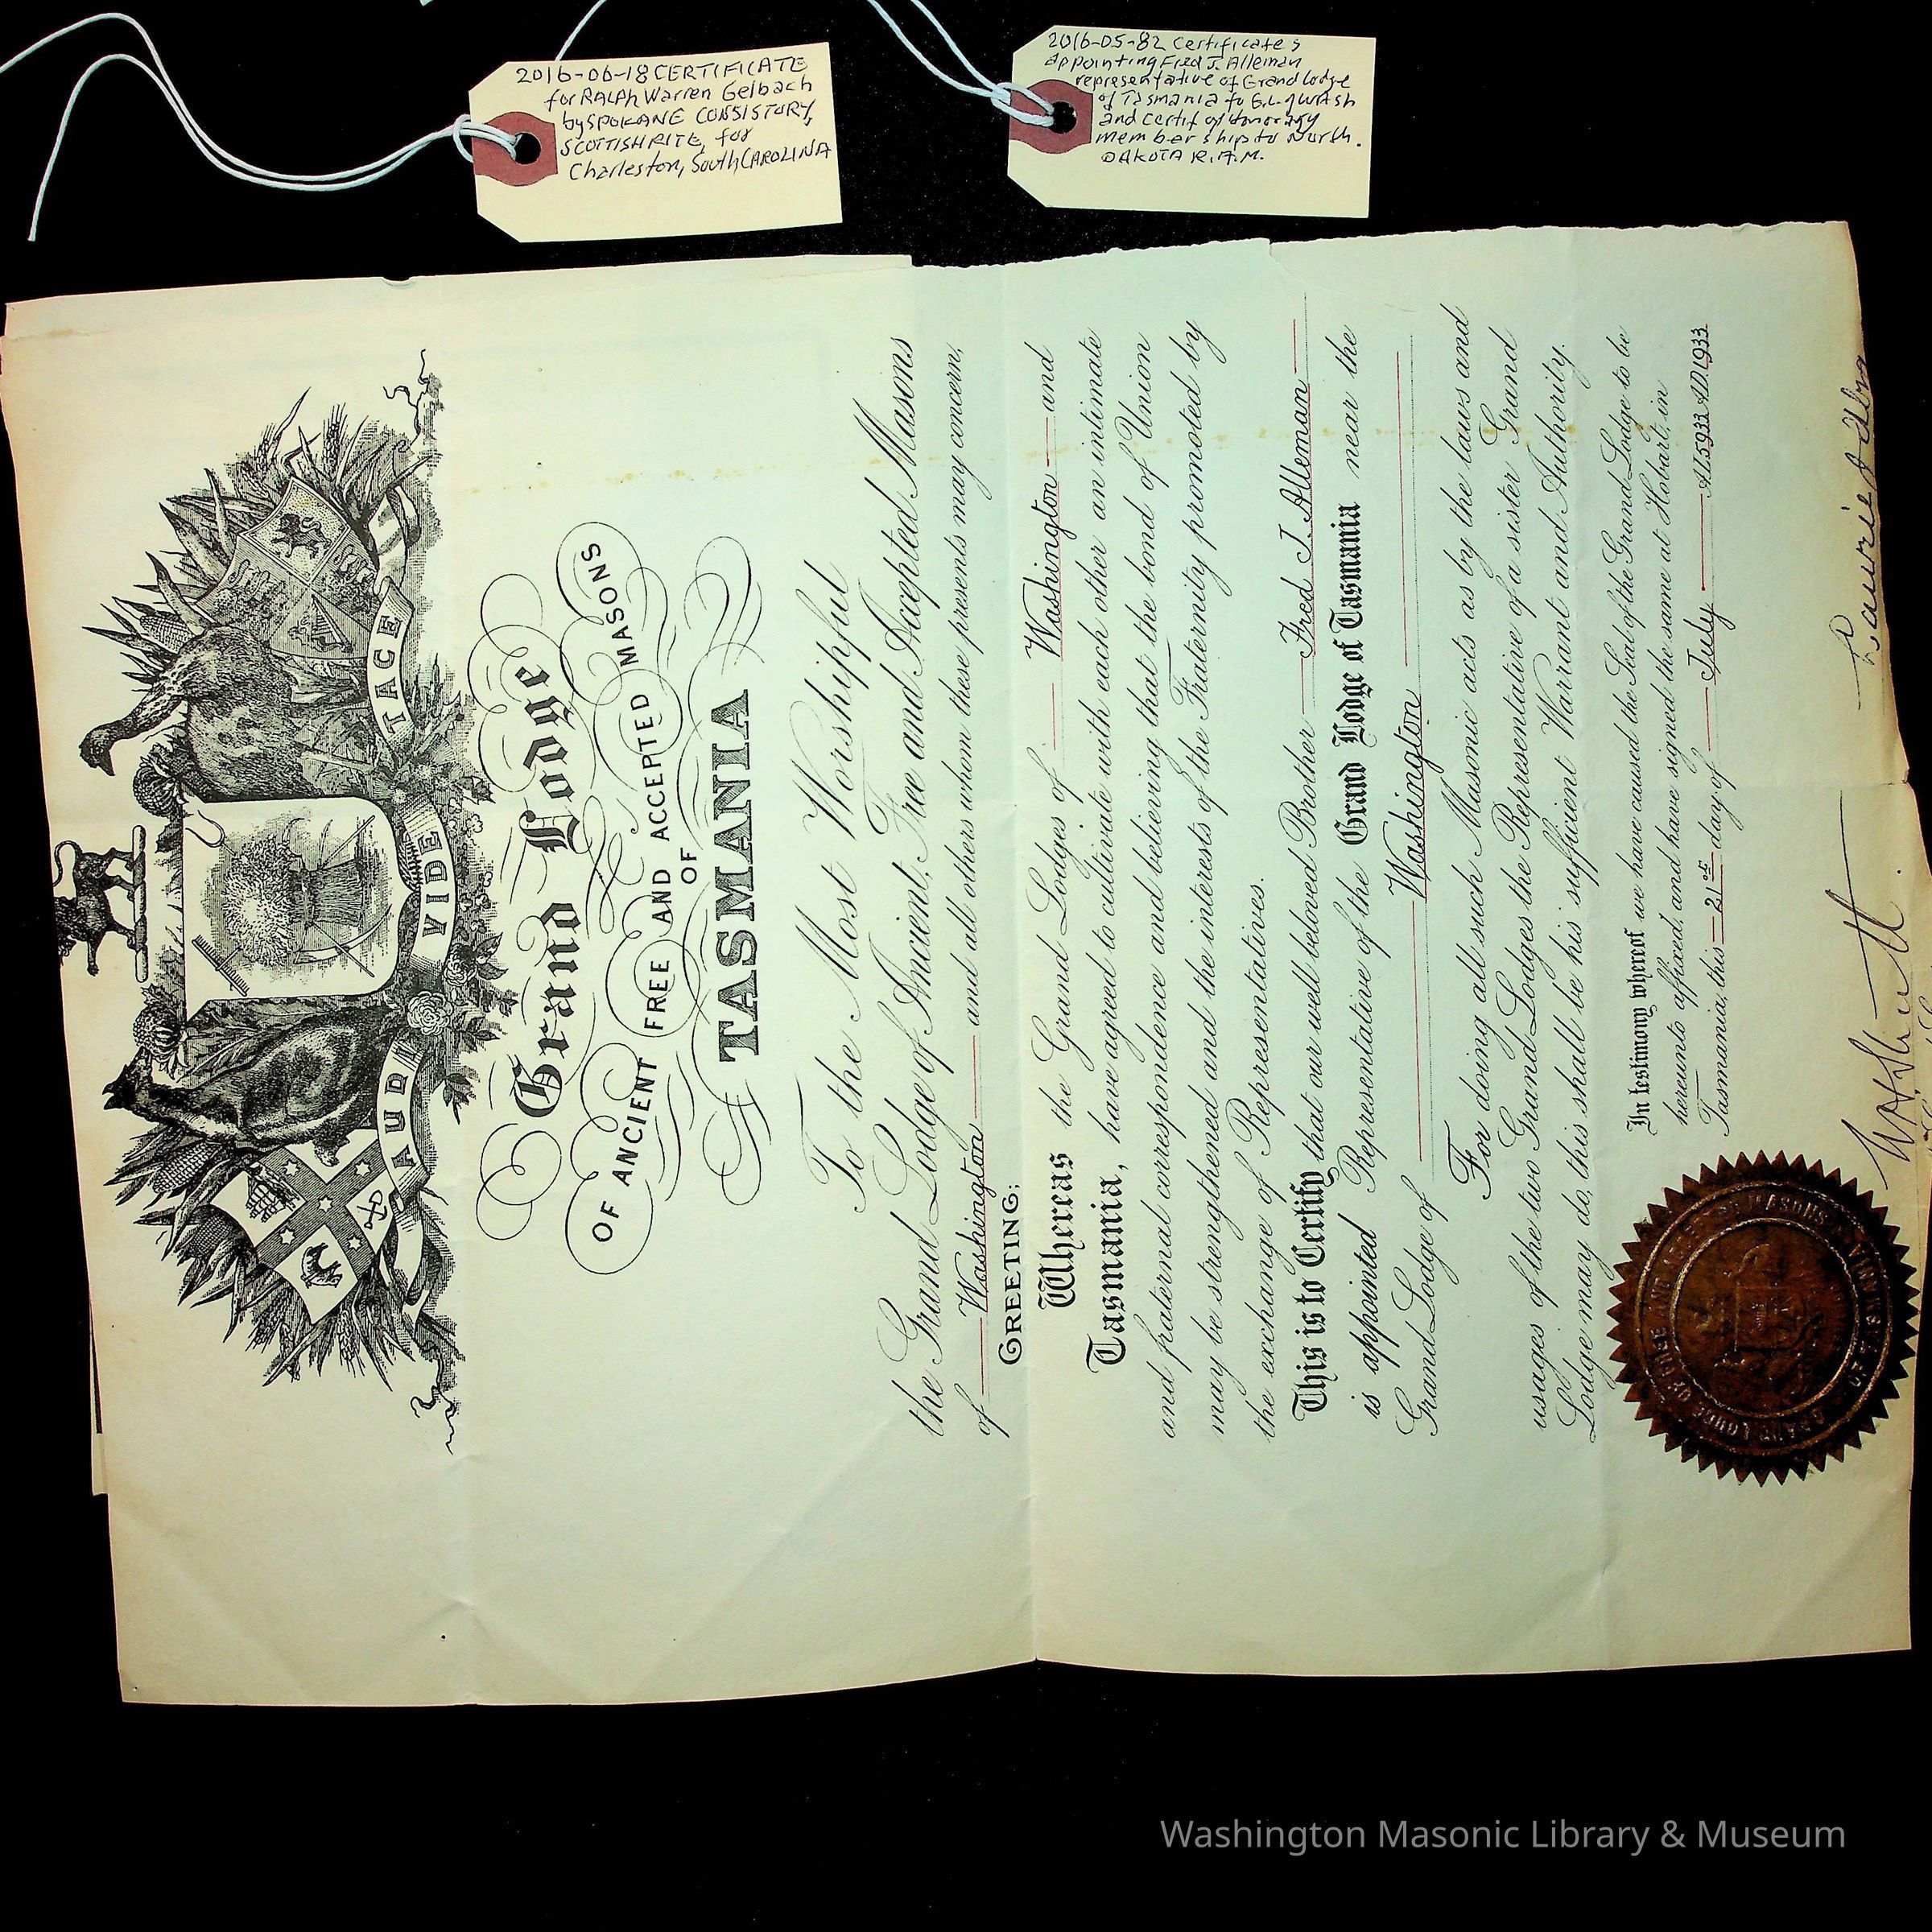 2016-06-18 CERTIFICATE
for RALPH Warren Gelbach
by SPOKANE CONSISTORY,
SCOTTISH RITE, for
Charleston, South CAROLINA
2016-05-82 Certificates
appointing Fred J. Alleman
representative of Grand Lodge
of Tasmania to G.L. of WASH
and certif of honorary
membership to North.
DAKOTA R.A.M.
AUDI VIDE TACE
Grand Lodge
OF ANCIENT FREE AND ACCEPTED MASONS
OF
TASMANIA
To the Most Worshipful
the Grand Lodge of Ancient, Free and Accepted Masons
of Washington and all others whom these presents may concern,
GREETING:
Whereas the Grand Lodges of Washington and
Tasmania, have agreed to cultivate with each other an intimate
and fraternal correspondence and believing that the bond of Union
may be strengthened and the interests of the Fraternity promoted by
the exchange of Representatives.
This is to Certify that our well beloved Brother Fred J. Alleman
is appointed Representative of the Grand Lodge of Tasmania near the
Grand Lodge of Washington
For doing all such Masonic acts as by the laws and
usages of the two Grand Lodges the Representative of a sister Grand
Lodge may do, this shall be his sufficient Warrant and Authority.
In testimony whereof we have caused the Seal of the Grand Lodge to be
hereunto affixed, and have signed the same at Hobart, in
Tasmania, this 21st day of July A.L. 5933 A.D. 1933
Washington Masonic Library & Museum